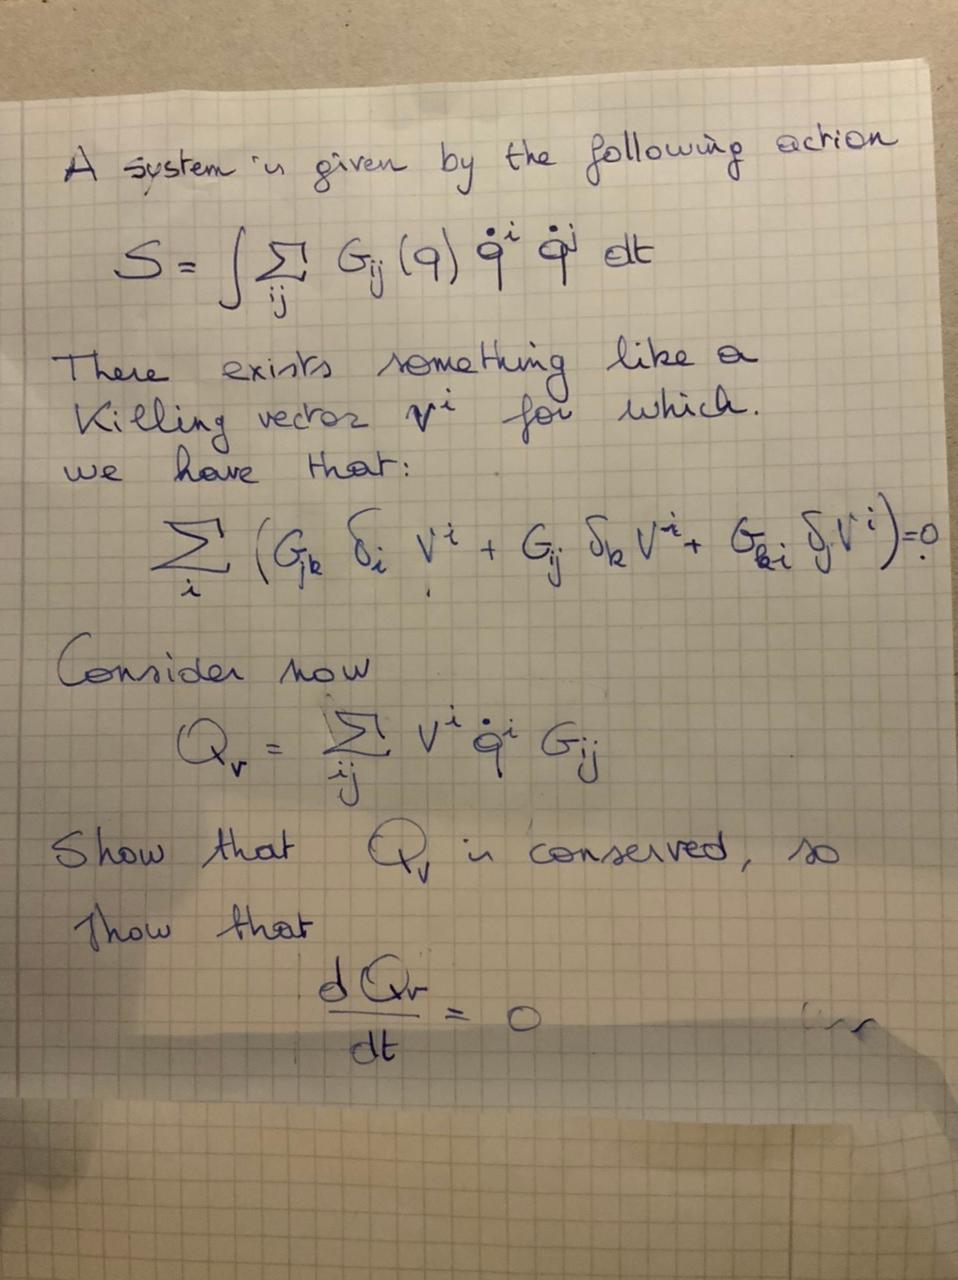 A system is given by the following action
S = ∫ Σ_{ij} G_{ij}(q) q̇^i q̇^j dt
There exists something like a
Killing vector v^i for which.
we have that:
Σ_i (G_{jk} δ_i V^i + G_{ij} δ_k V^i + G_{ki} δ_j V^i) = 0
Consider now
Q_v = Σ_{ij} V^i q̇^i G_{ij}
Show that Q_v is conserved, so
show that
dQ_v/dt = 0